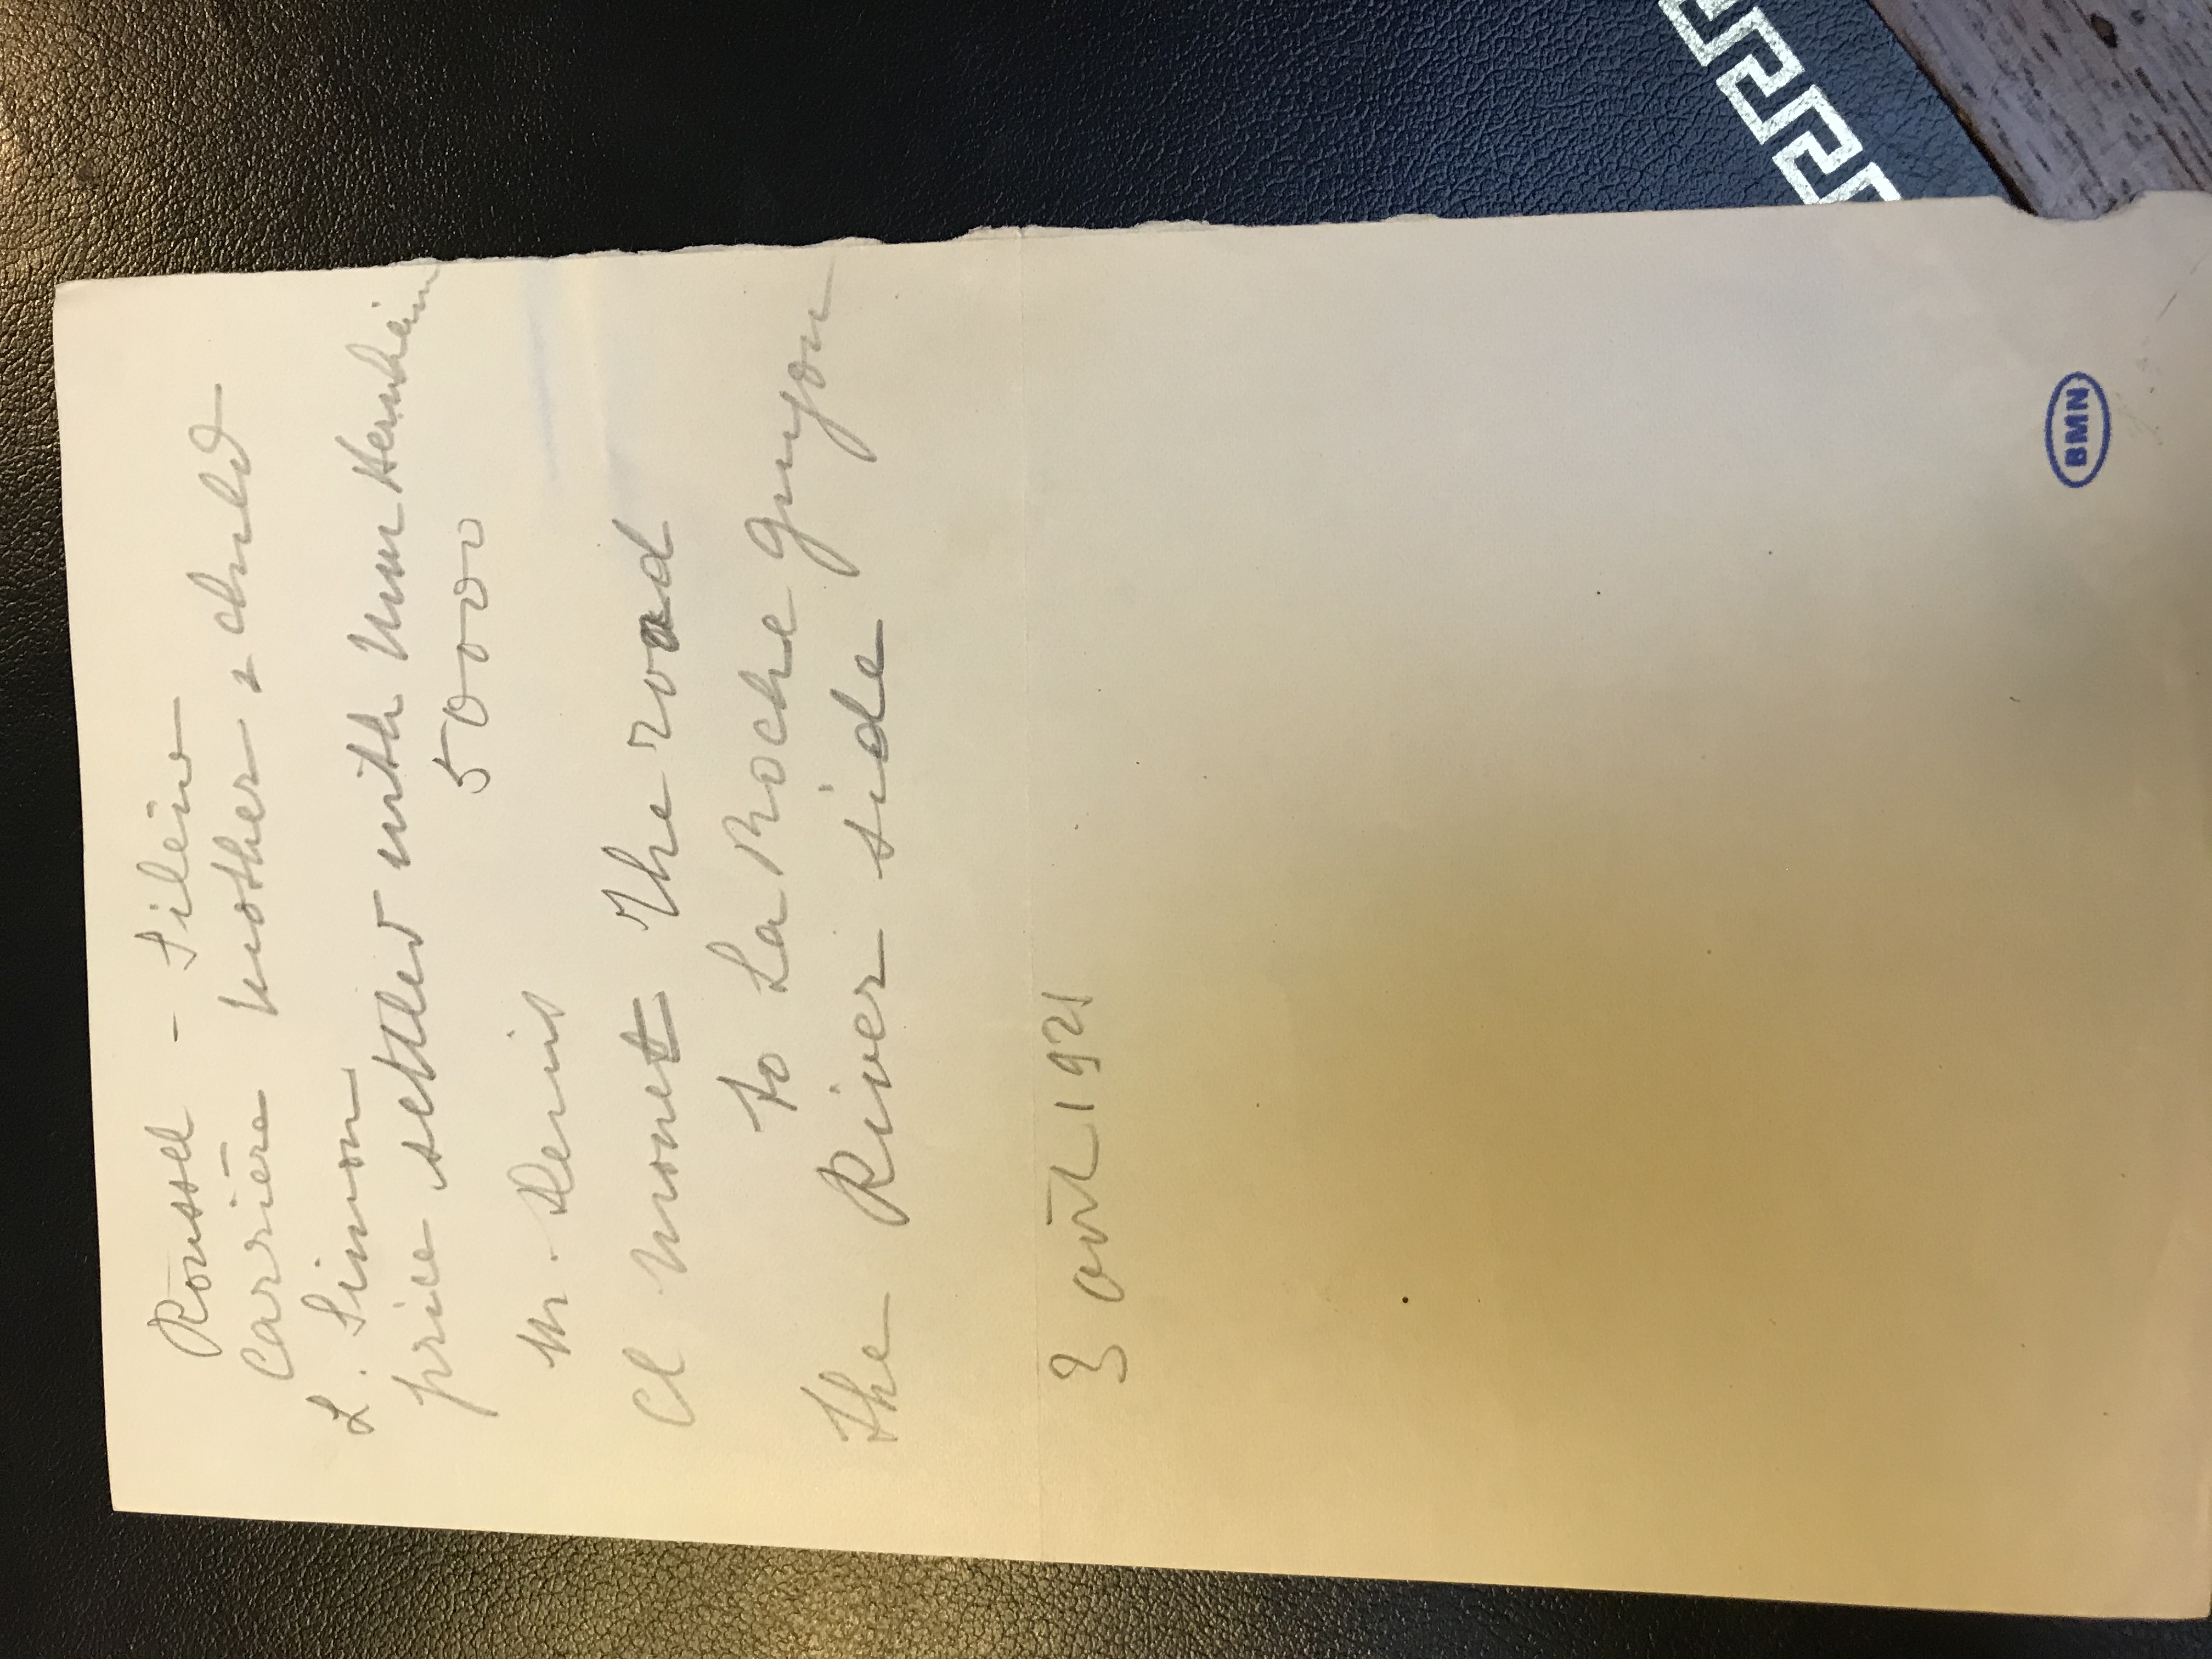 Roussel - Silène
Carrière mother & child
L. Simon
price settled with Mme Hernheim
50000
M. Denis
Cl Monet The road
to La Roche Guyon
The River side
3 août 1921
BMN